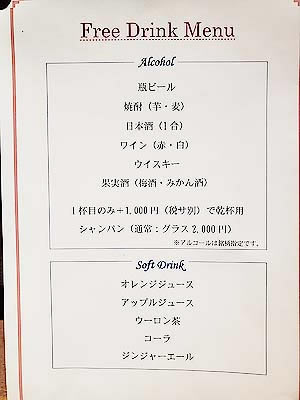 Free Drink Menu
Alcohol
瓶ビール
焼酎（芋・麦）
日本酒（1合）
ワイン（赤・白）
ウイスキー
果実酒（梅酒・みかん酒）
1杯目のみ＋1,000円（税サ別）で乾杯用
シャンパン（通常：グラス2,000円）
※アルコールは銘柄指定です。
Soft Drink
オレンジジュース
アップルジュース
ウーロン茶
コーラ
ジンジャーエール